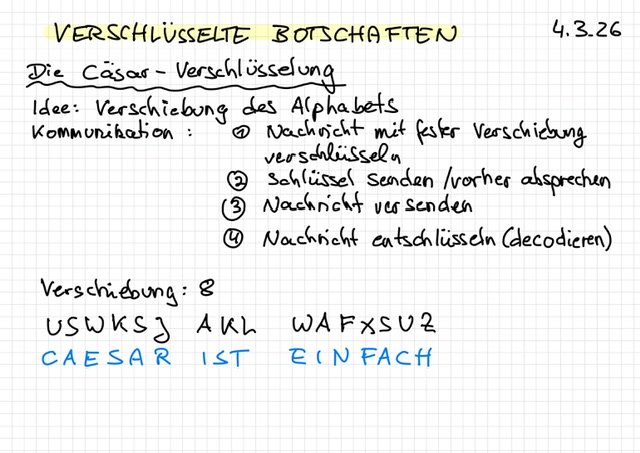 VERSCHLÜSSELTE BOTSCHAFTEN 4.3.26
Die Cäsar-Verschlüsselung
Idee: Verschiebung des Alphabets
Kommunikation: ① Nachricht mit fester Verschiebung
verschlüsseln
② Schlüssel senden /vorher absprechen
③ Nachricht versenden
④ Nachricht entschlüsseln (decodieren)
Verschiebung: 8
USWKSJ AKL WAFXSUZ
CAESAR IST EINFACH